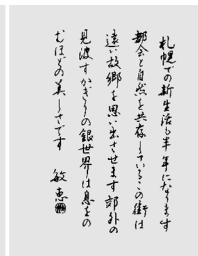 札幌での新生活も半年になります
都会と自然を共存しているこの街は
遠い故郷を思い出させます郊外の
見渡すかぎりの銀世界は息をの
むほどの美しさです
敏恵